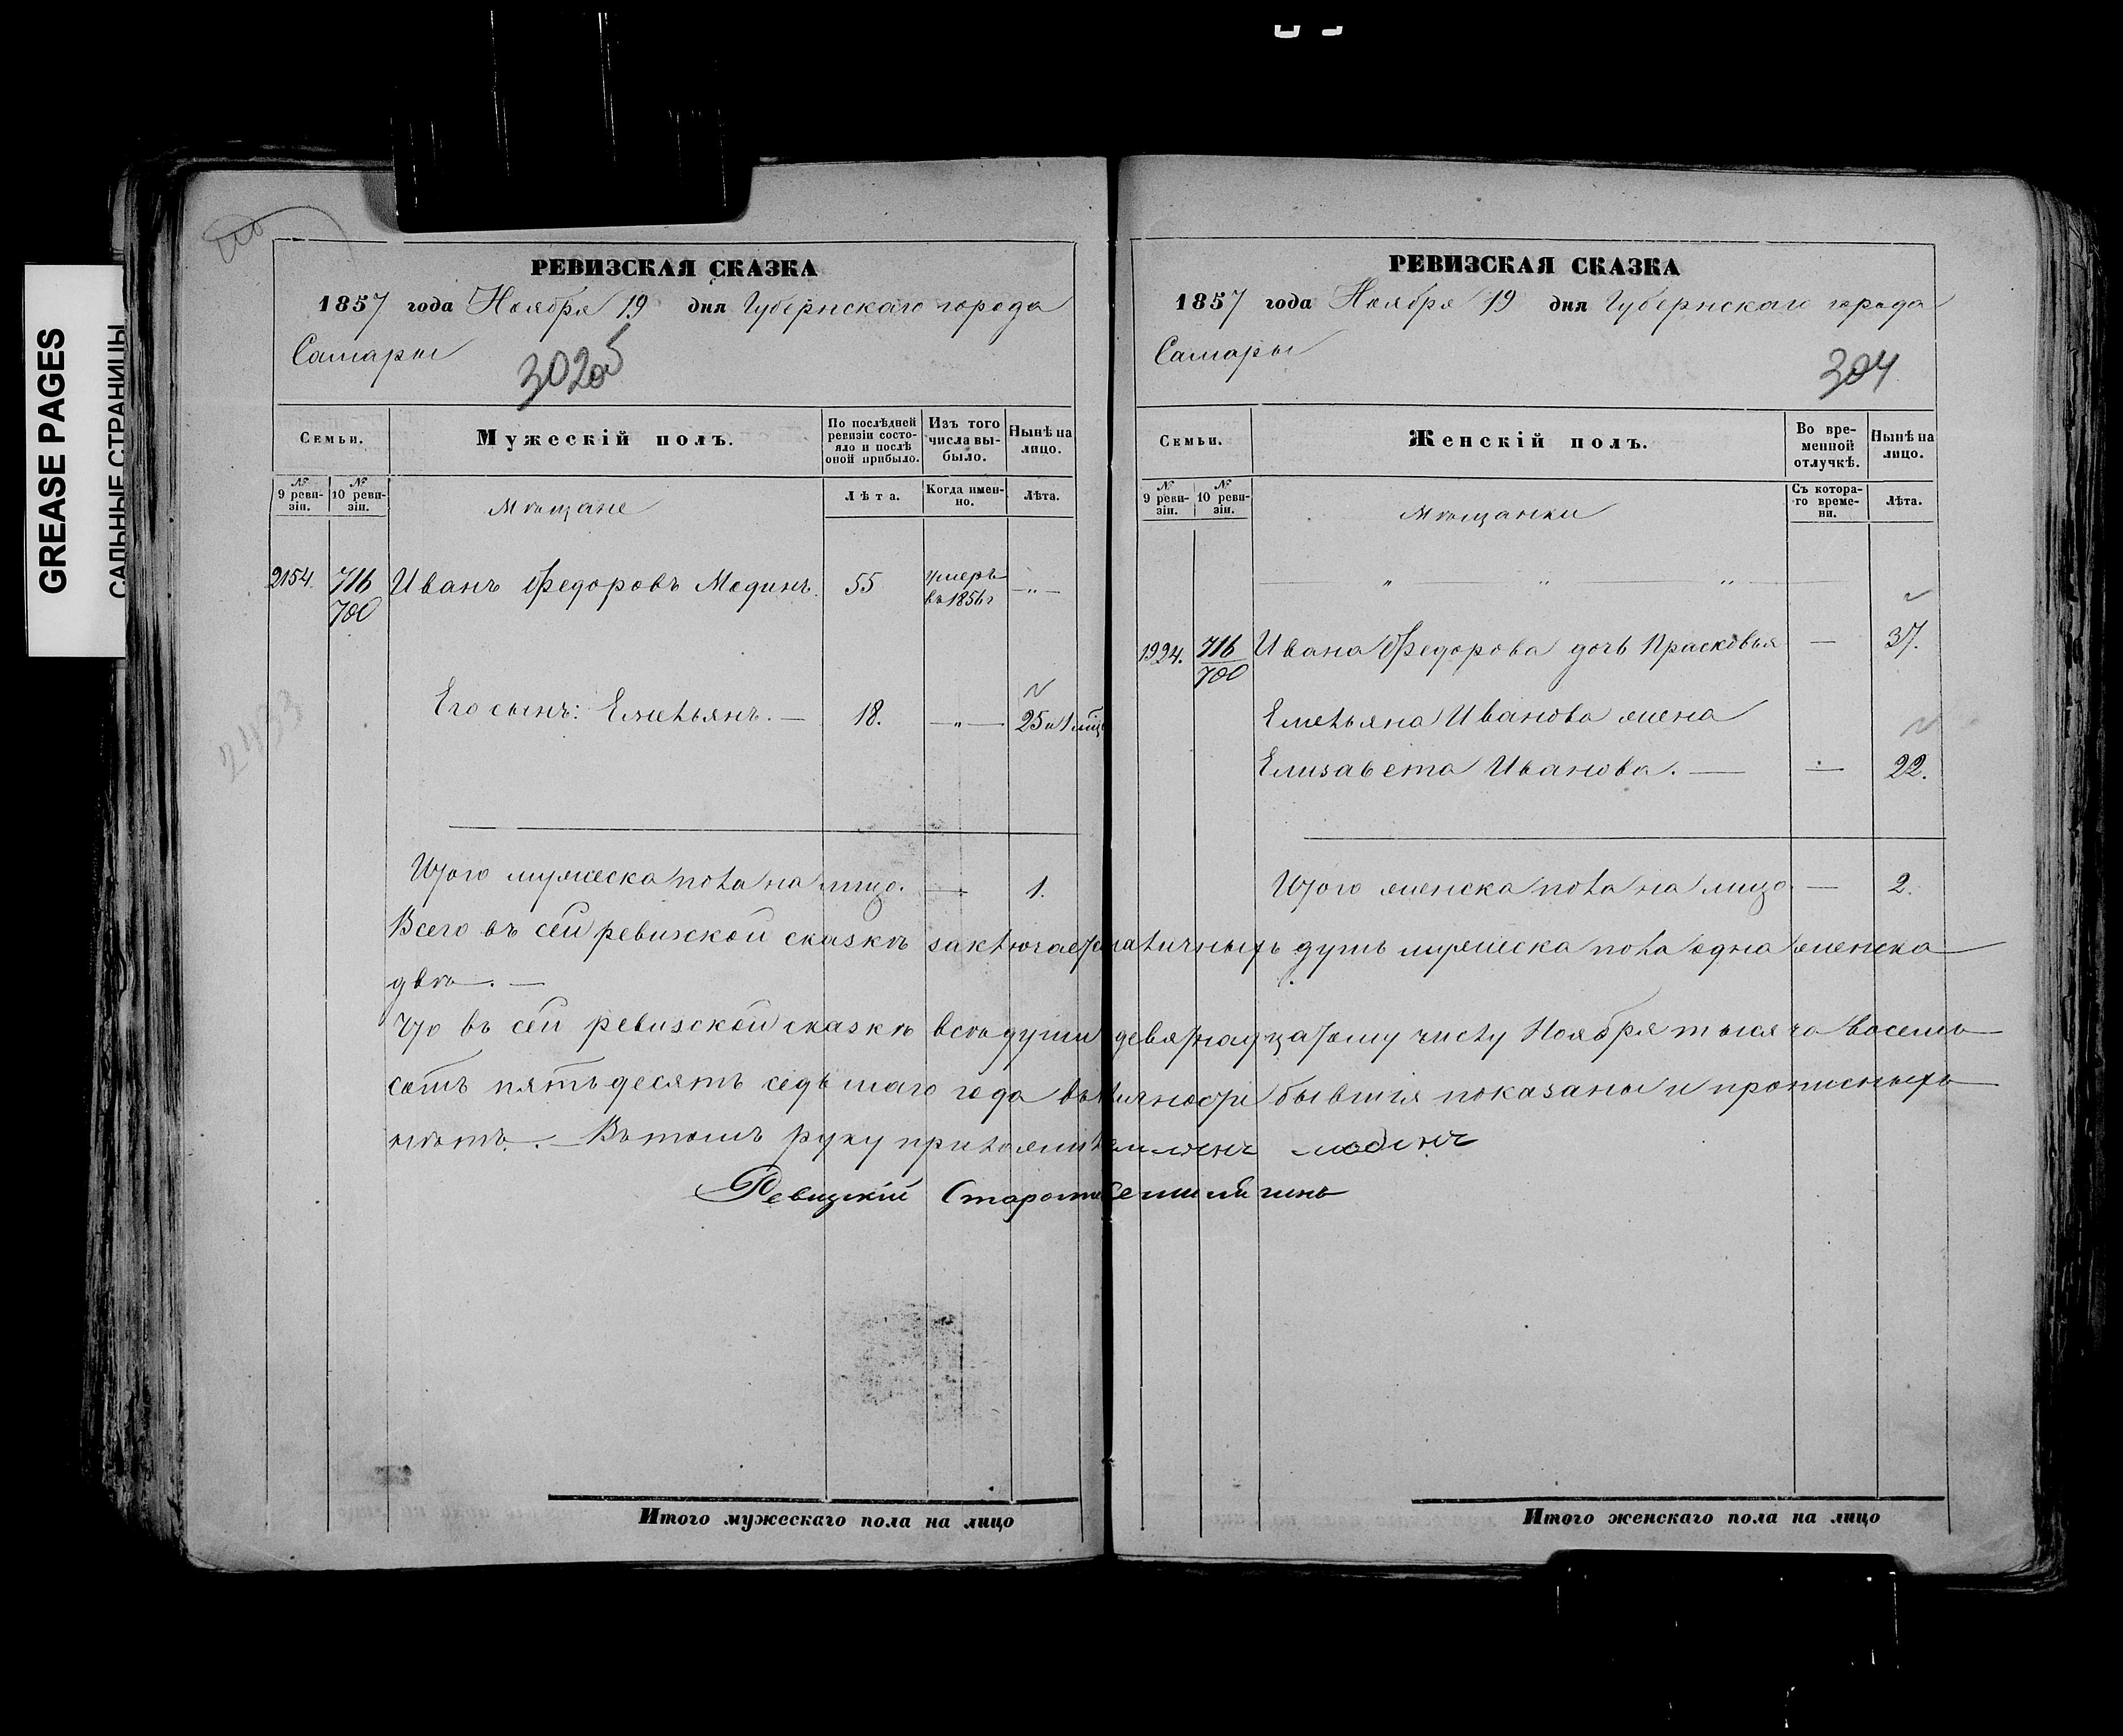 GREASE PAGES
САЛЬНЫЕ СТРАНИЦЫ
РЕВИЗСКАЯ СКАЗКА
1857 года Ноября 19 дня Губернскаго города
Самары
Семьи.
Мужескій полъ.
По послѣдней ревизіи состояло и послѣ оной прибыло.
Изъ того числа выбыло.
Нынѣ на лицо.
№ 9 ревизіи.
№ 10 ревизіи.
Мѣщане
Лѣта.
Когда именно.
Лѣта.
2154. 716 Иванъ Федоровъ Мединъ. 55 умеръ въ 1856 г —"—
700
Его сынъ: Емельянъ. — 18. —"— 25 и 1 мѣц
Итого мужеска пола на лицо. — 1.
РЕВИЗСКАЯ СКАЗКА
1857 года Ноября 19 дня Губернскаго города
Самары
304
Семьи.
Женскій полъ.
Во временной отлучкѣ.
Нынѣ на лицо.
№ 9 ревизіи.
№ 10 ревизіи.
Мѣщанки
Съ котораго времени.
Лѣта.
1924. 716 Ивана Федорова дочь Прасковья — 37.
700
Емельяна Иванова жена
Елизавета Иванова. — — 22.
Итого женска пола на лицо. — 2.
Всего въ сей ревизской сказкѣ заключается наличныхъ душъ мужеска пола одна женска
двѣ. —
Что въ сей ревизской сказкѣ всѣ души девятнадцатому числу Ноября тысяча восемь
сотъ пятьдесятъ седьмаго года въ личности бывшія показаны и прописныхъ
нѣтъ. — Въ томъ руку приложилъ
Ревизкій Староста
Итого мужескаго пола на лицо
Итого женскаго пола на лицо